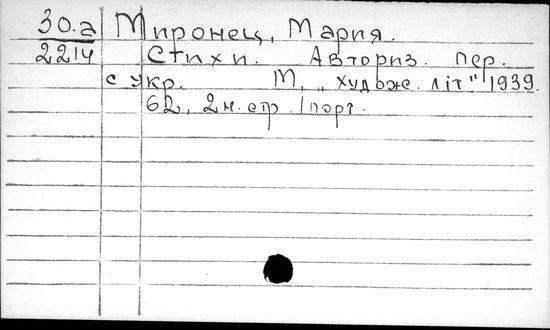 30.а Миронец, Мария.
2214 Стихи. Авториз. пер.
с укр. М, „худож. літ." 1939.
62, 2н. стр. 1 порт.